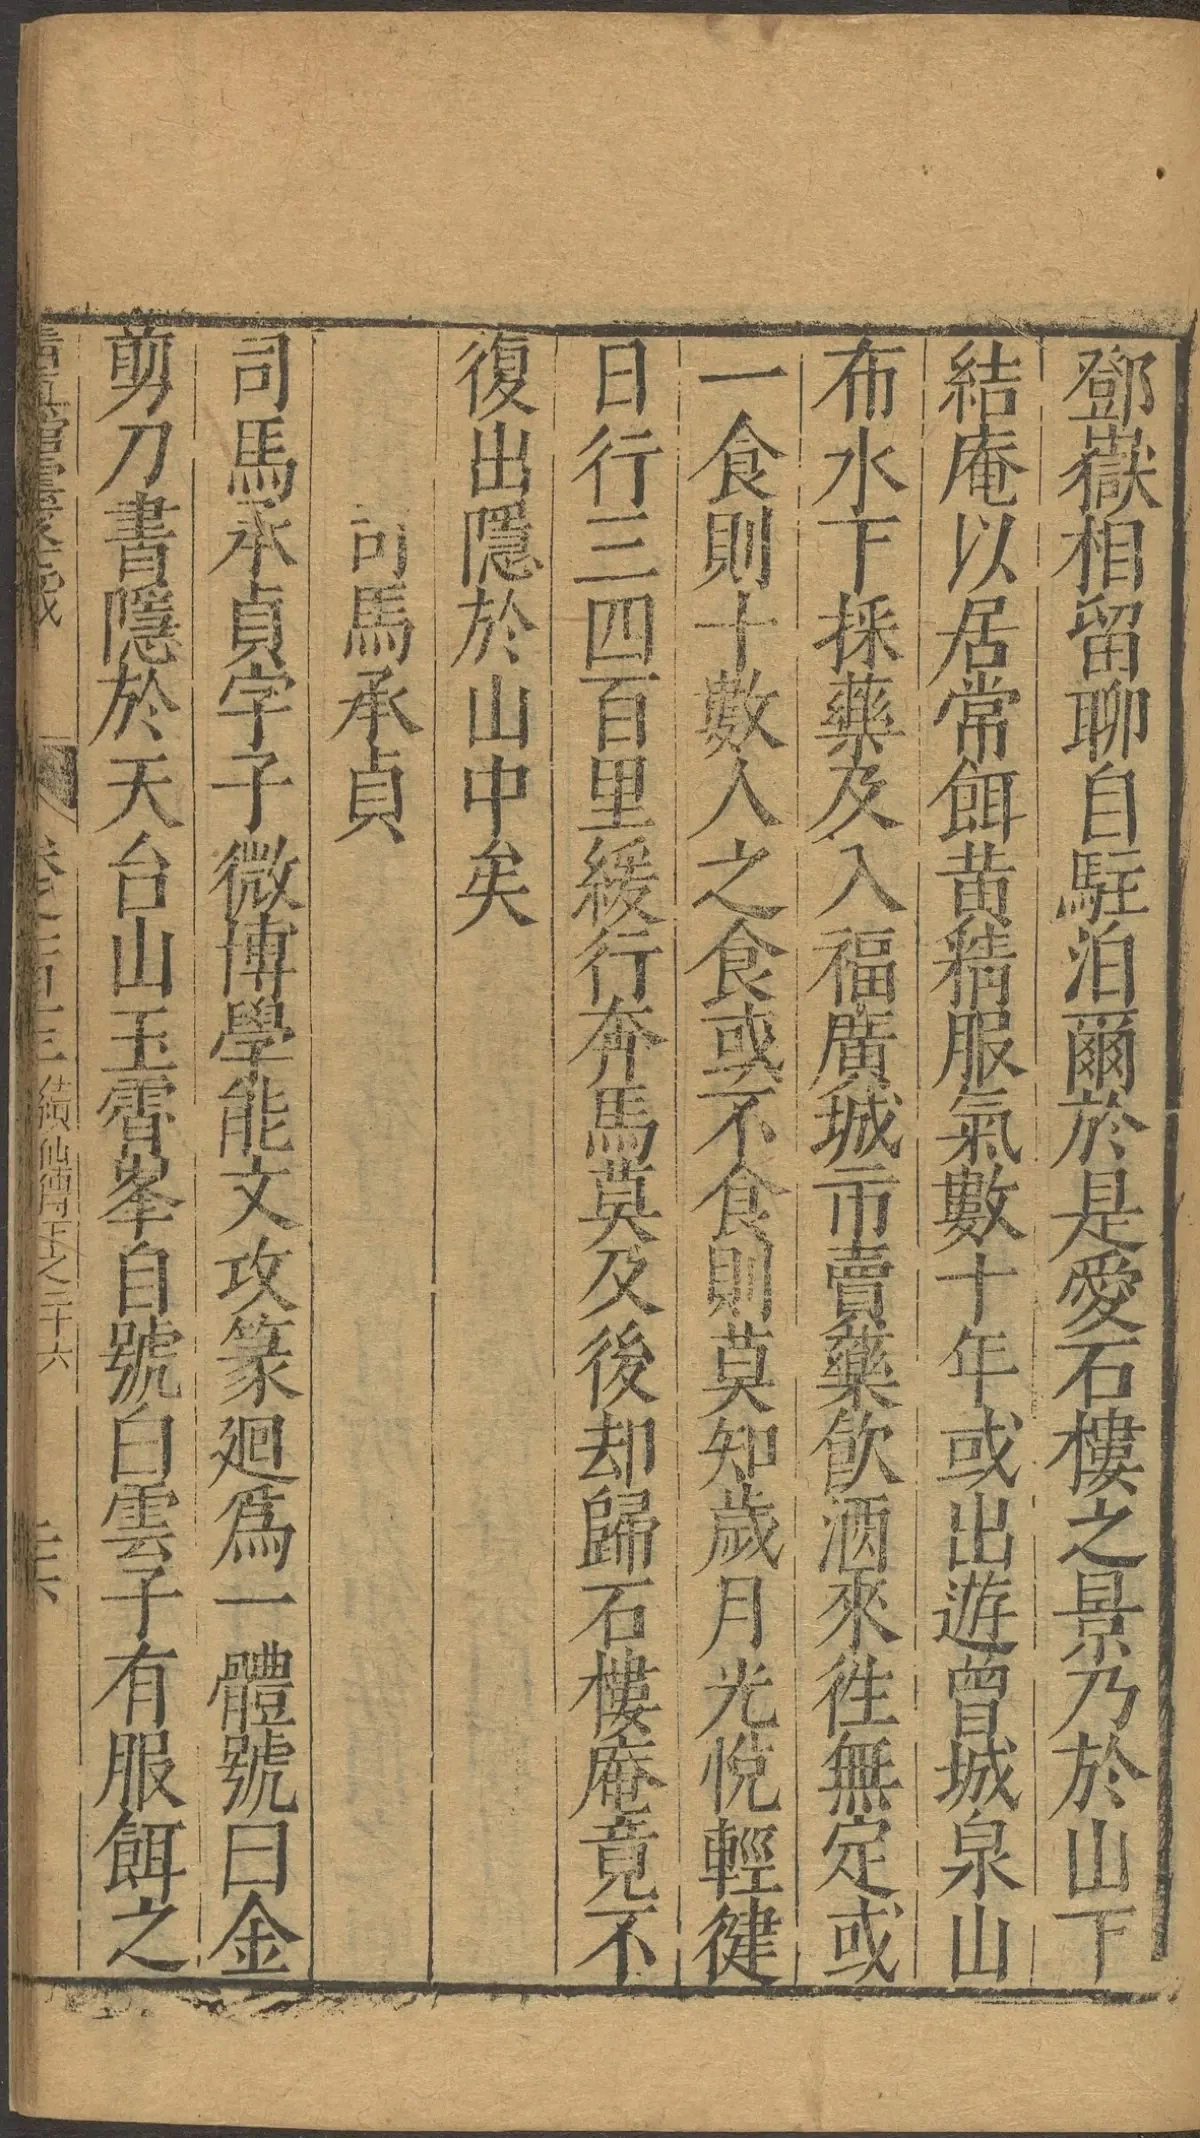 鄧嶽相留聊自駐泊爾於是愛石樓之景乃於山下
結庵以居常餌黃精服氣數十年或出遊曾城泉山
布水下採藥及入福廣城市賣藥飲酒來徃無定或
一食則十數人之食或不食則莫知歲月光悅輕健
日行三四百里緩行奔馬莫及後却歸石樓庵竟不
復出隱於山中矣
司馬承貞
司馬承貞字子微博學能文攻篆迴爲一體號曰金
剪刀書隱於天台山玉霄峯自號白雲子有服餌之
清真館雲笈七籤 卷之一百十三 續仙傳下之三十六 三六